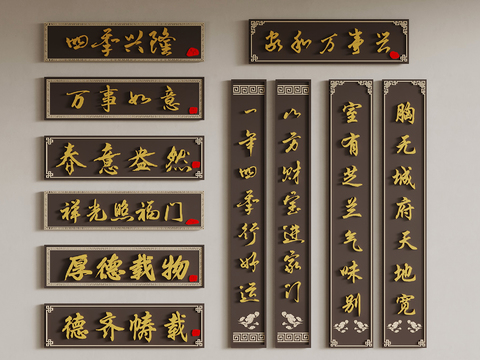 四季兴隆
万事如意
春意盎然
祥光照福门
厚德载物
德齐帱载
家和万事兴
一年四季行好运
八方财宝进家门
室有芝兰气味别
胸无城府天地宽